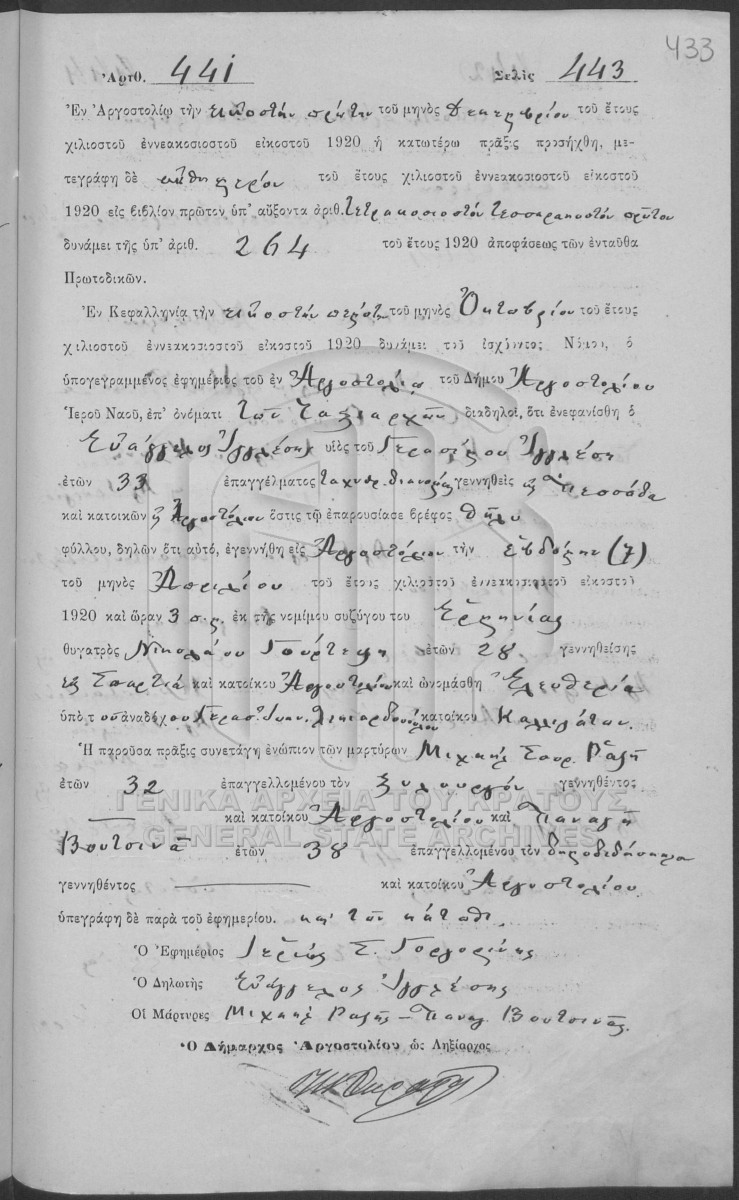 433
Ἀριθ. 441 Σελὶς 443
Ἐν Ἀργοστολίῳ τὴν εἰκοστὴν πρώτην τοῦ μηνὸς Δεκεμβρίου τοῦ ἔτους
χιλιοστοῦ ἐννεακοσιοστοῦ εἰκοστοῦ 1920 ἡ κατωτέρω πρᾶξις προσήχθη, με-
τεγράφη δὲ αὐθημερὸν τοῦ ἔτους χιλιοστοῦ ἐννεακοσιοστοῦ εἰκοστοῦ
1920 εἰς βιβλίον πρῶτον ὑπ' αὔξοντα ἀριθ. τετρακοσιοστὸν τεσσαρακοστὸν πρῶτον
δυνάμει τῆς ὑπ' ἀριθ. 264 τοῦ ἔτους 1920 ἀποφάσεως τῶν ἐνταῦθα
Πρωτοδικῶν.
Ἐν Κεφαλληνίᾳ τὴν εἰκοστὴν πέμπτην τοῦ μηνὸς Ὀκτωβρίου τοῦ ἔτους
χιλιοστοῦ ἐννεακοσιοστοῦ εἰκοστοῦ 1920 δυνάμει τοῦ ἰσχύοντος Νόμου, ὁ
ὑπογεγραμμένος ἐφημέριος τοῦ ἐν Ἀργοστολίῳ τοῦ Δήμου Ἀργοστολίου
Ἱεροῦ Ναοῦ, ἐπ' ὀνόματι τῶν Ταξιαρχῶν διαδηλοῖ, ὅτι ἐνεφανίσθη ὁ
Εὐάγγελος Ἀγγλέσης υἱὸς τοῦ Γερασίμου Ἀγγλέση
ἐτῶν 33 ἐπαγγέλματος ταχυδρ. διανομεὺς γεννηθεὶς εἰς Πεσσάδα
καὶ κατοικῶν εἰς Ἀργοστόλιον ὅστις τῷ ἐπαρουσίασε βρέφος θῆλυ
φύλλου, δηλῶν ὅτι αὐτό, ἐγεννήθη εἰς Ἀργοστόλιον τὴν ἑβδόμην (7)
τοῦ μηνὸς Ἀπριλίου τοῦ ἔτους χιλιοστοῦ ἐννεακοσιοστοῦ εἰκοστοῦ
1920 καὶ ὥραν 3 ἐκ τῆς νομίμου συζύγου του Ἑρμηνίας
θυγατρὸς Νικολάου ἐτῶν 28 γεννηθείσης
εἰς Σπαρτιὰ καὶ κατοίκου Ἀργοστολίου καὶ ὠνομάσθη Ἐλευθερία
ὑπὸ τοῦ ἀναδόχου Γερασ. κατοίκου Καλλιγάτων.
Ἡ παροῦσα πρᾶξις συνετάγη ἐνώπιον τῶν μαρτύρων Μιχαὴλ Σπυρ. Ραζῆ
ἐτῶν 32 ἐπαγγελλομένου τὸν ξυλουργὸν γεννηθέντος
— καὶ κατοίκου Ἀργοστολίου καὶ Παναγῆ
Βουτσινᾶ ἐτῶν 38 ἐπαγγελλομένου τὸν δημοδιδάσκαλο
γεννηθέντος — καὶ κατοίκου Ἀργοστολίου
ὑπεγράφη δὲ παρὰ τοῦ ἐφημερίου. καὶ τῶν κάτωθι
Ὁ Ἐφημέριος Ἱερεὺς Σ.
Ὁ Δηλωτὴς Εὐάγγελος Ἀγγλέσης
Οἱ Μάρτυρες Μιχαὴλ Ραζῆς – Παναγ. Βουτσινᾶς
Ὁ Δήμαρχος Ἀργοστολίου ὡς Ληξίαρχος
ΓΕΝΙΚΑ ΑΡΧΕΙΑ ΤΟΥ ΚΡΑΤΟΥΣ
GENERAL STATE ARCHIVES